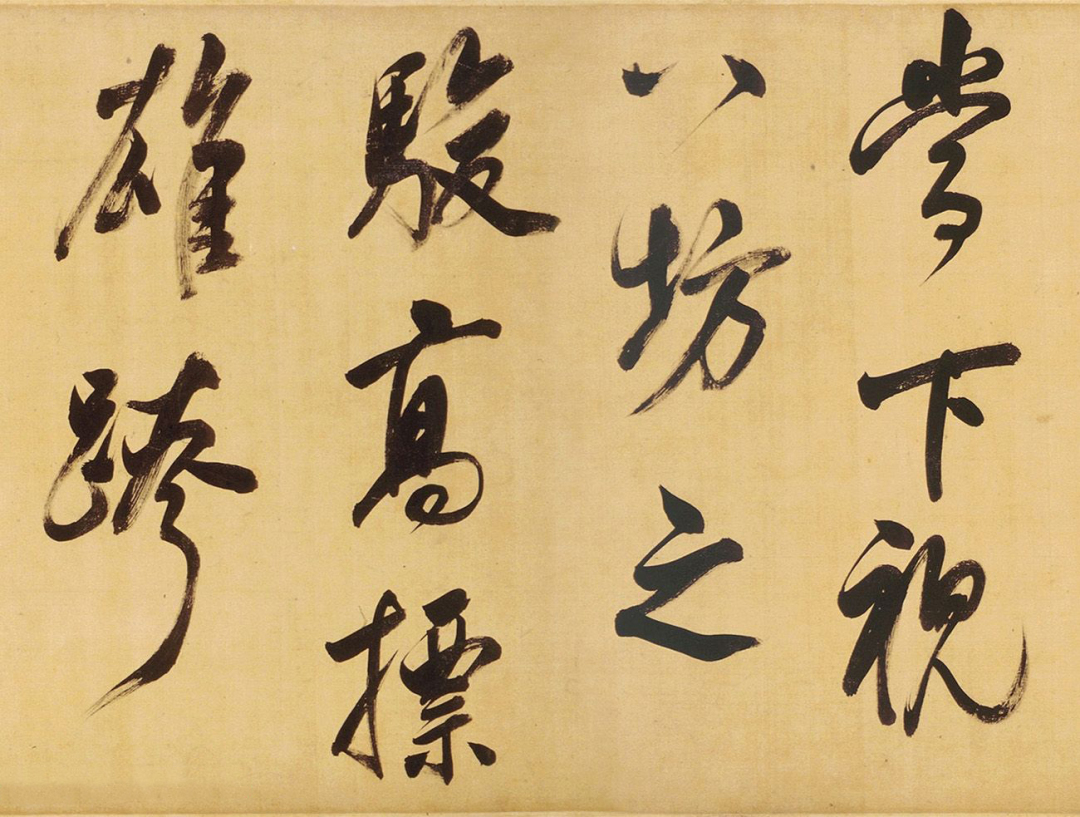 當下視
八坊之
駿高標
雄跨